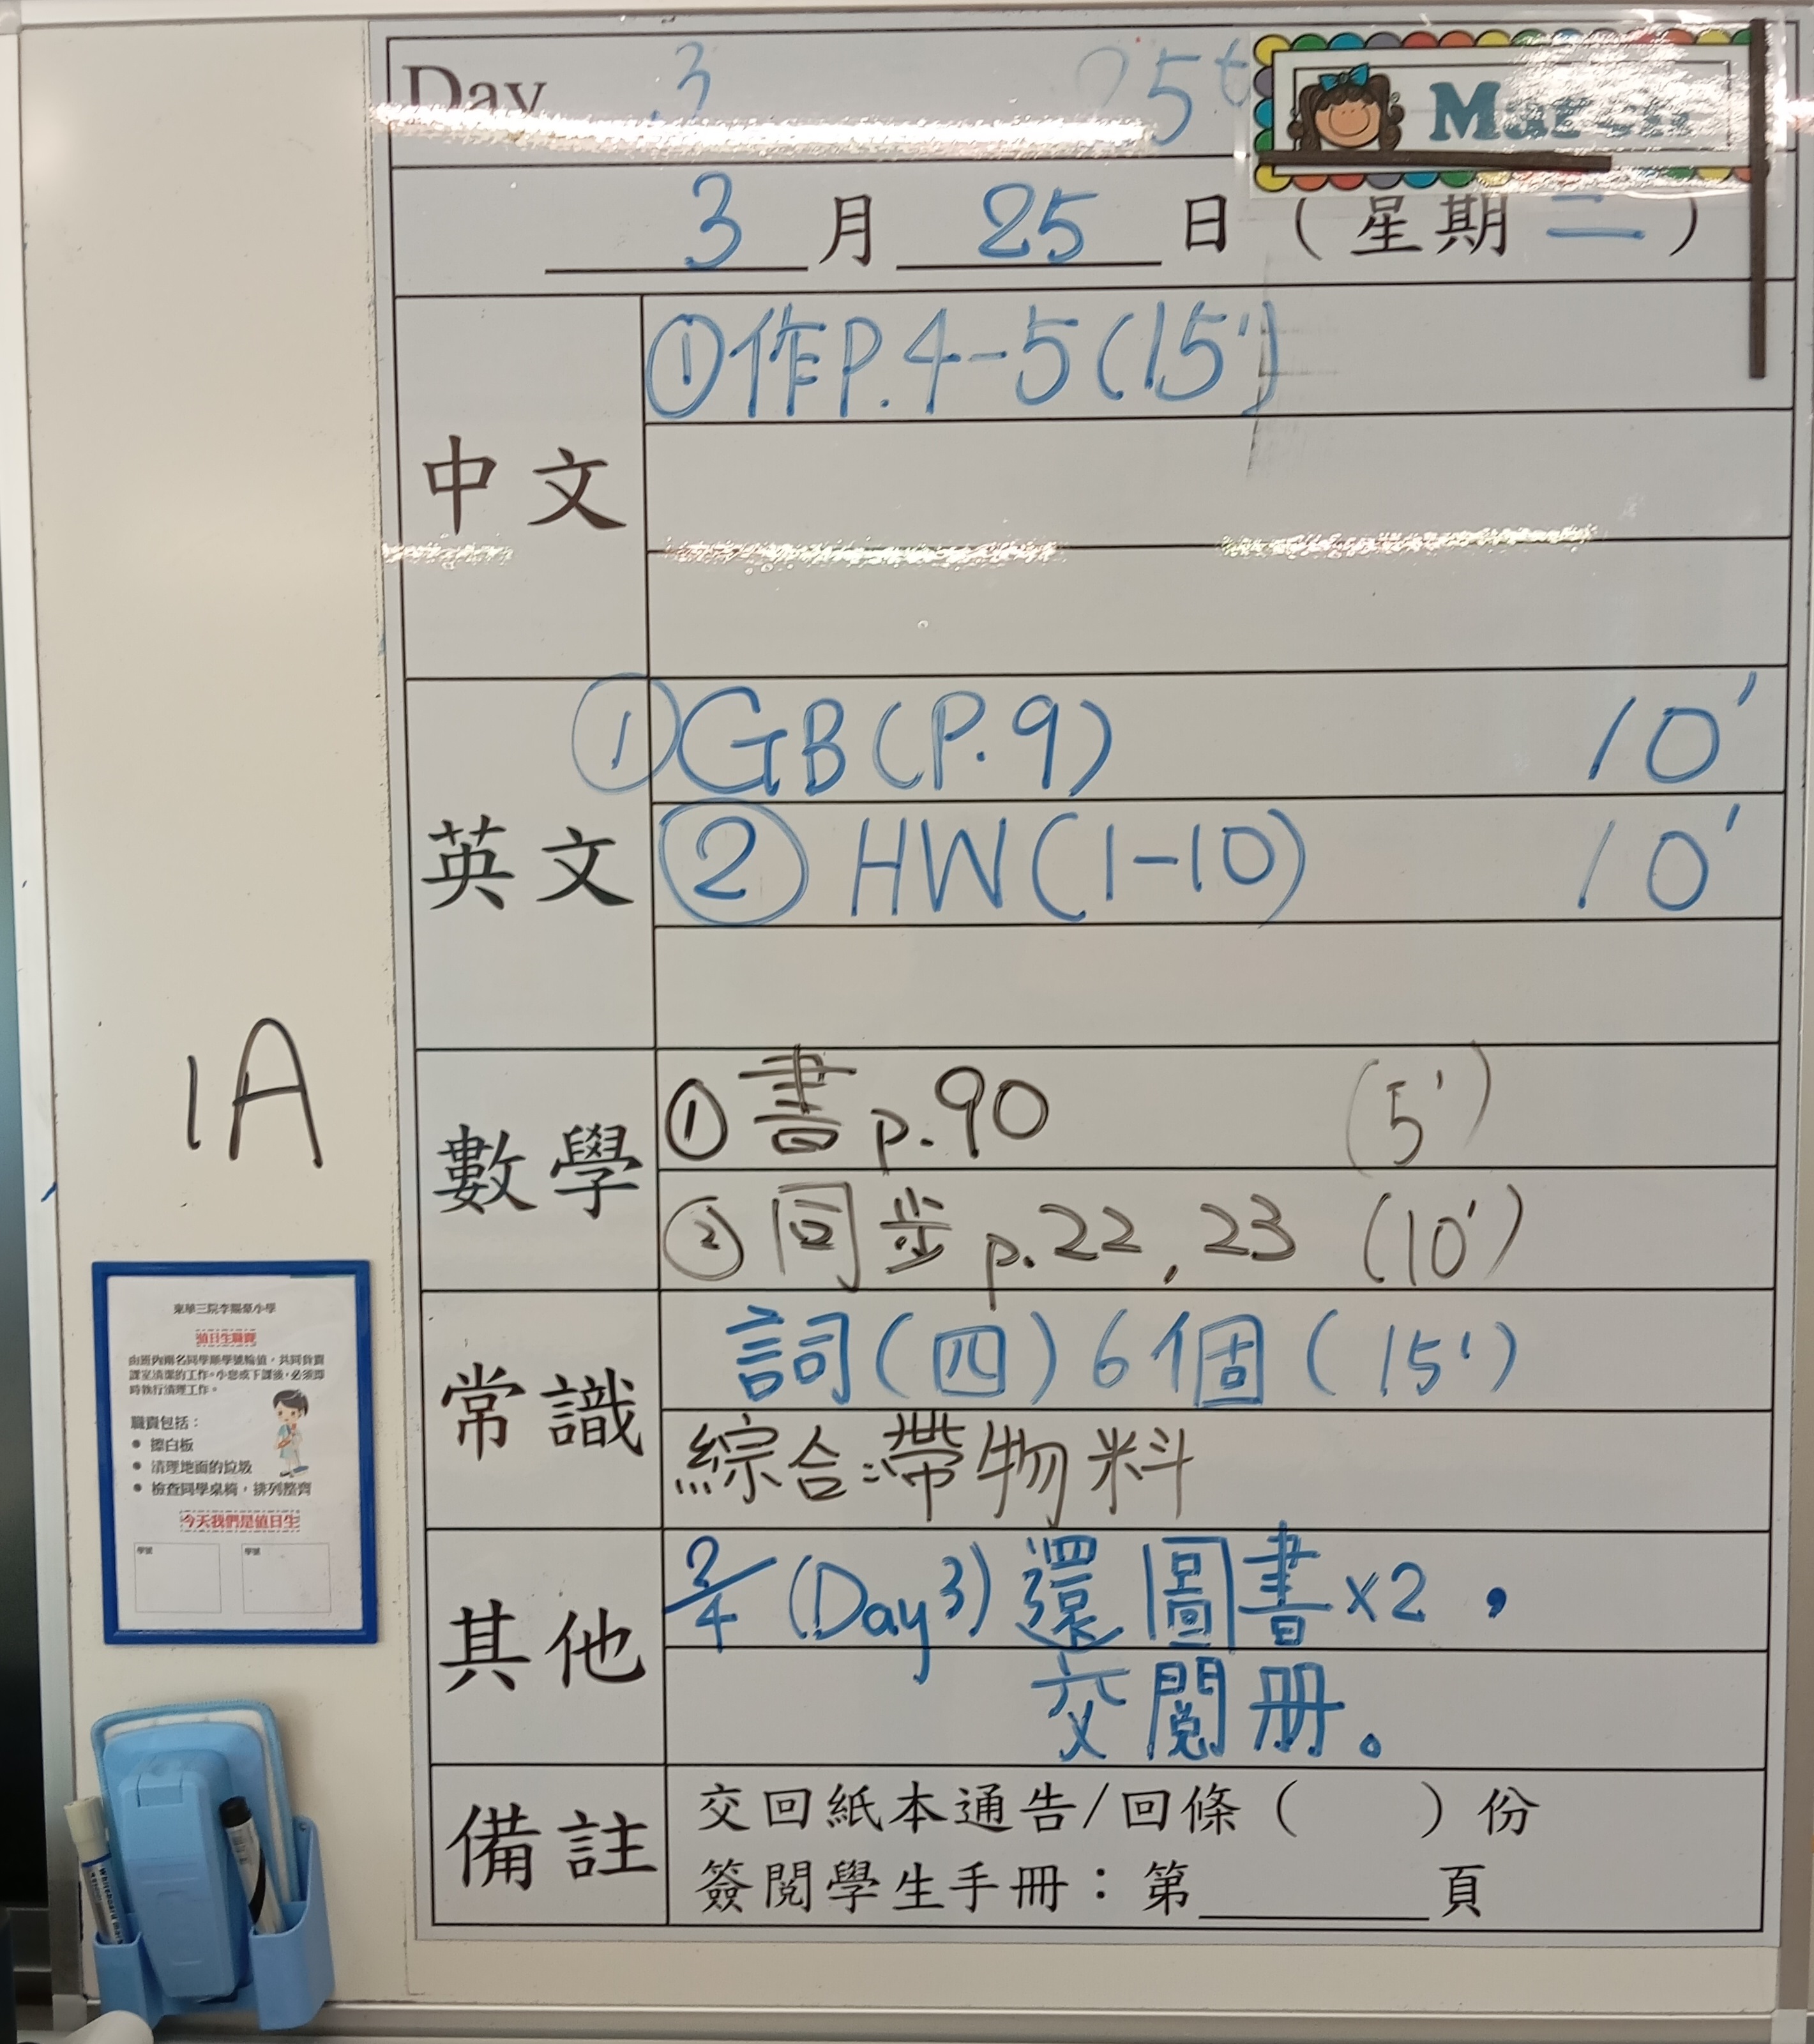 Day 3 25t March
3月25日(星期二)
中文
①作P.4-5(15')
英文
①GB(P.9) 10'
②HW(1-10) 10'
數學
①書p.90 (5')
②同步p.22,23 (10')
常識
詞(四)6個(15')
綜合:帶物料
其他
2/4(Day3)還圖書x2,
交閱册。
備註
交回紙本通告/回條( )份
簽閱學生手冊:第______頁
1A
東華三院李賜豪小學
值日生職責
由班內兩名同學順學號輪值,共同負責
課室清潔的工作。小息或下課後,必須即
時執行清理工作。
職責包括:
● 擦白板
● 清理地面的垃圾
● 檢查同學桌椅,排列整齊
今天我們是值日生
學號 學號
Whiteboard